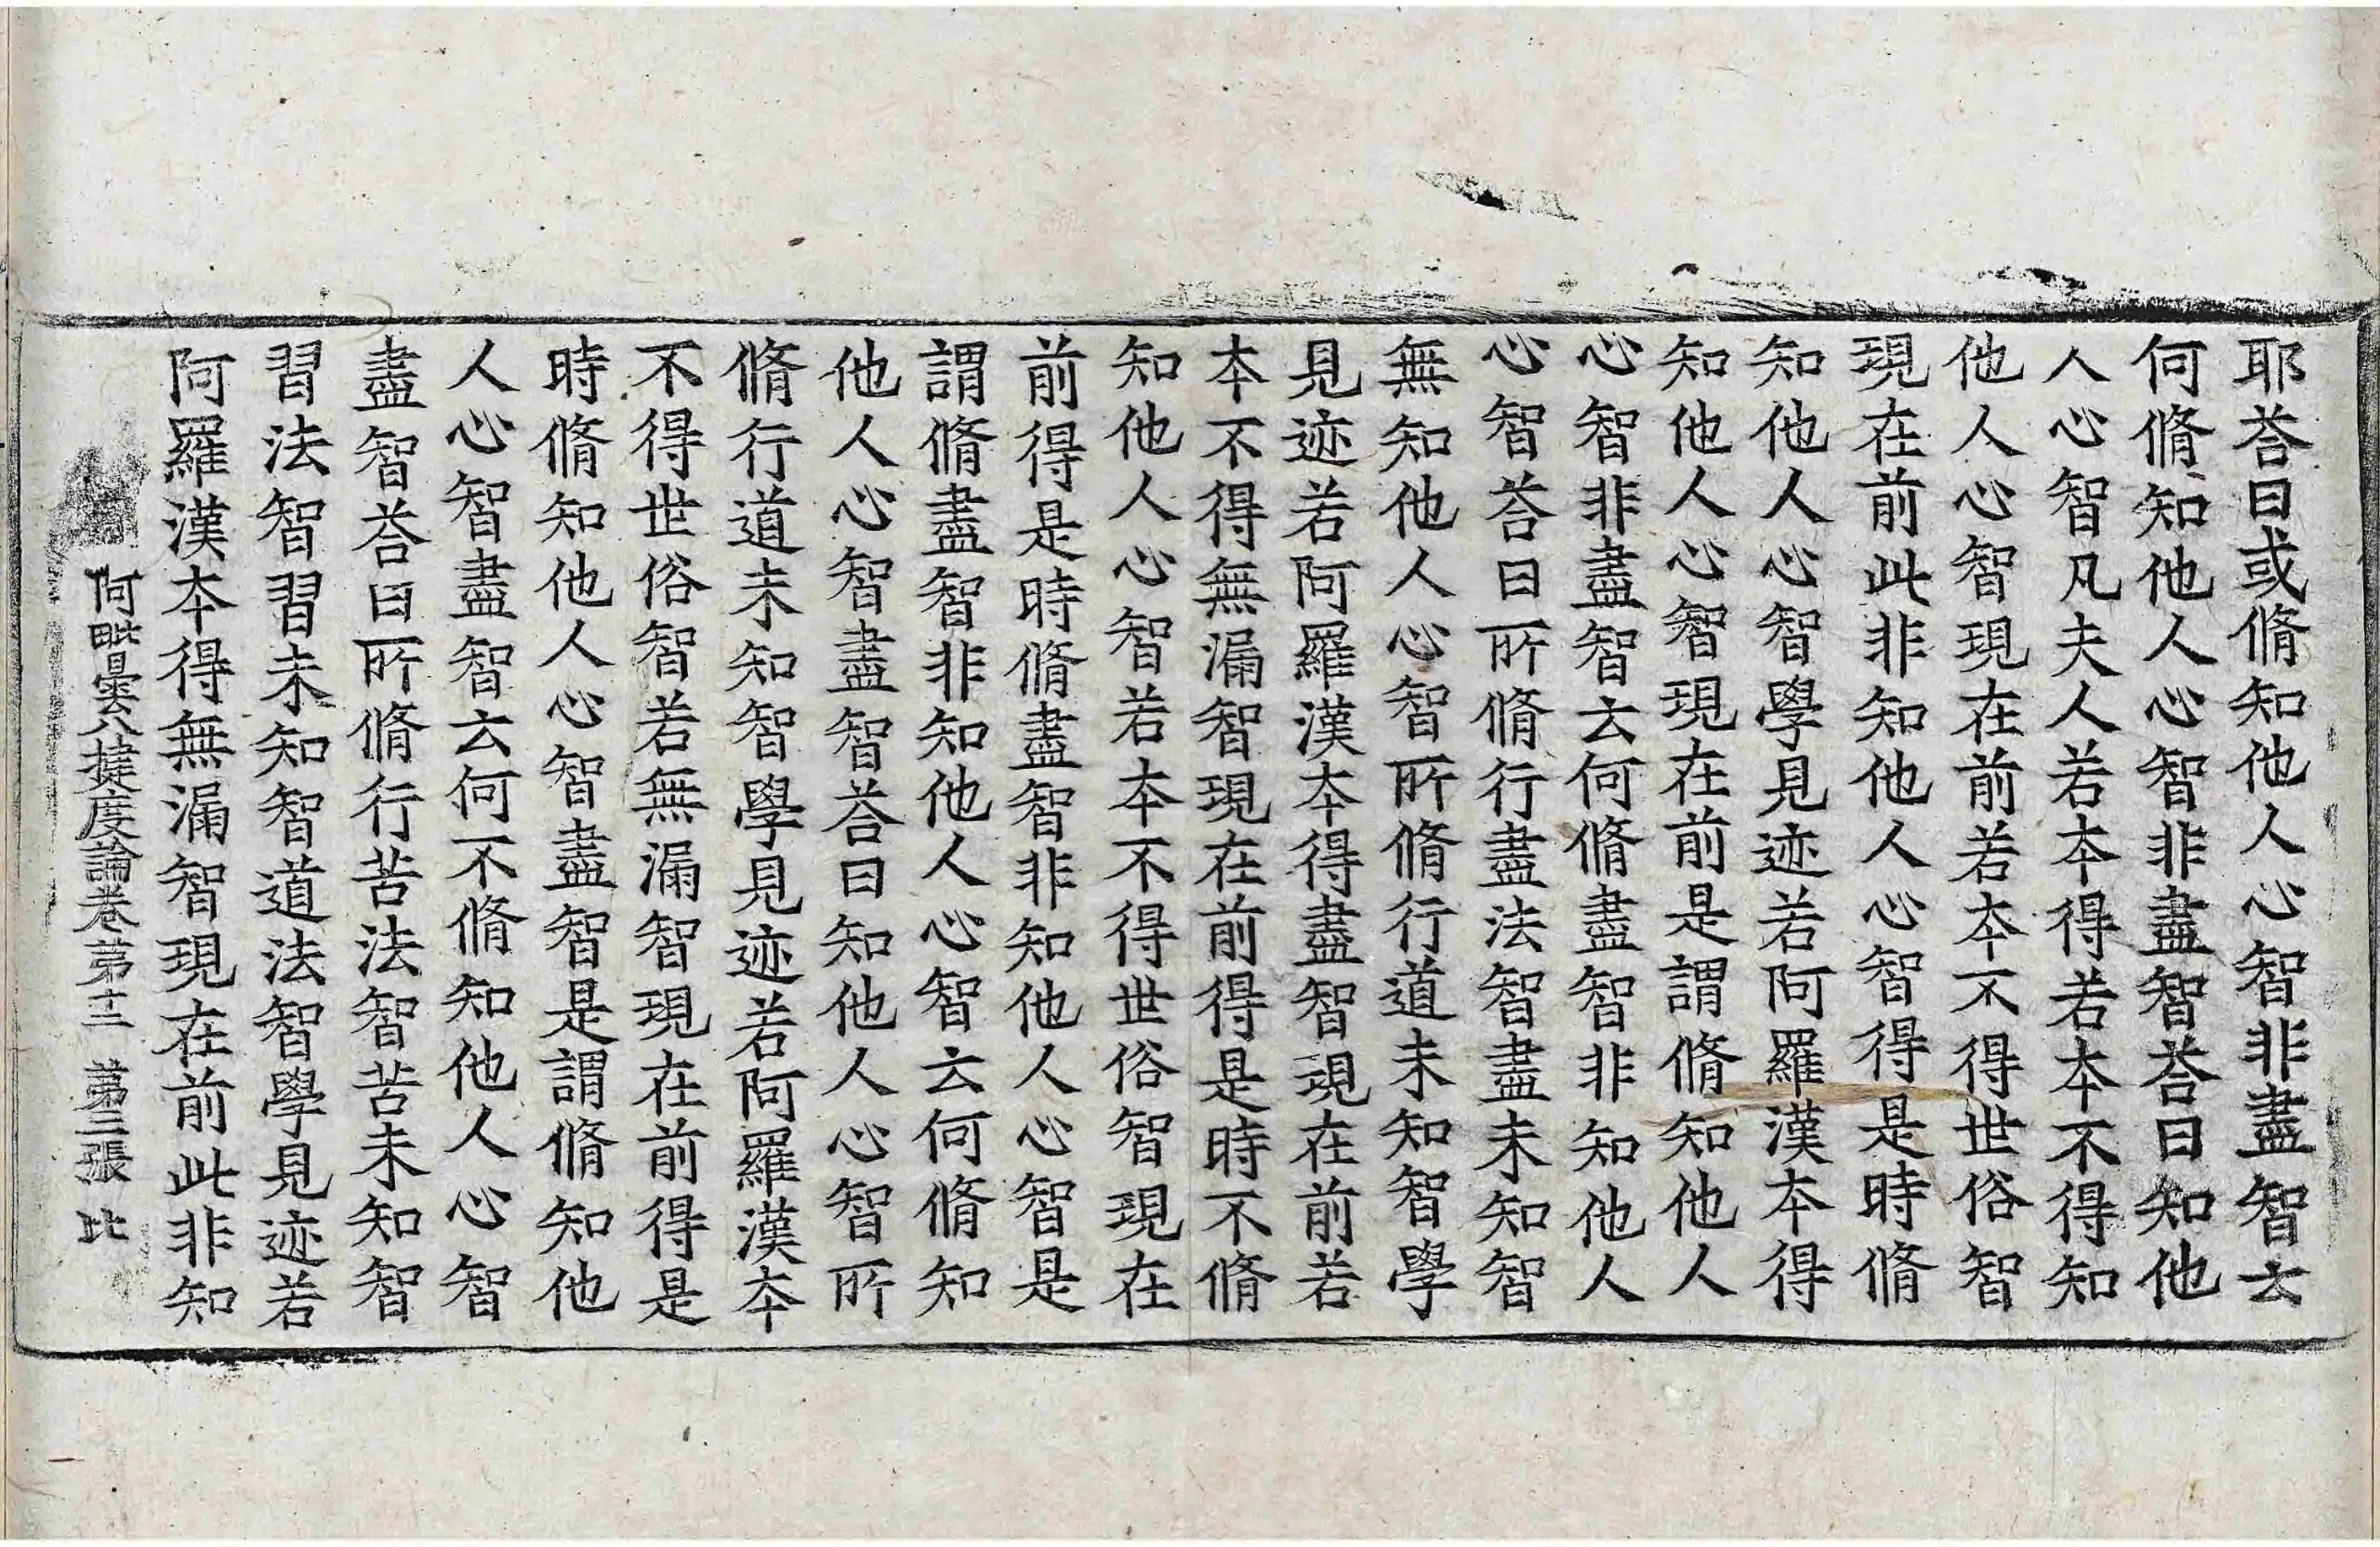 耶荅曰或脩知他人心智非盡智云
何脩知他人心智非盡智荅曰知他
人心智凡夫人若本得若本不得知
他人心智現在前若本不得世俗智
現在前此非知他人心智得是時脩
知他人心智學見迹若阿羅漢本得
知他人心智現在前是謂脩知他人
心智非盡智云何脩盡智非知他人
心智荅曰所脩行盡法智盡未知智
無知他人心智所脩行道未知智學
見迹若阿羅漢本得盡智現在前若
本不得無漏智現在前得是時不脩
知他人心智若本不得世俗智現在
前得是時脩盡智非知他人心智是
謂脩盡智非知他人心智云何脩知
他人心智盡智荅曰知他人心智所
脩行道未知智學見迹若阿羅漢本
不得世俗智若無漏智現在前得是
時脩知他人心智盡智是謂脩知他
人心智盡智云何不脩知他人心智
盡智荅曰所脩行苦法智苦未知智
習法智習未知智道法智學見迹若
阿羅漢本得無漏智現在前此非知
阿毗曇八揵度論卷第十二 第三張 比